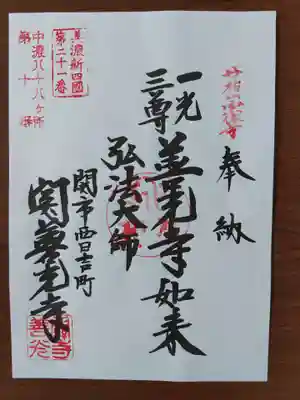 奉納
一光
三尊
善光寺如来
弘法大師
関市西日吉町
関善光寺
美濃新四國
第二十一番
中濃八十八ヶ所
第十